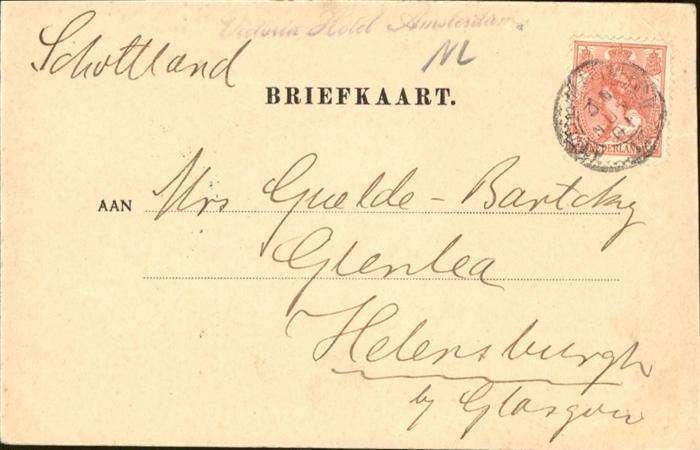 Victoria Hotel Amsterdam.
NL
Schottland
BRIEFKAART.
NEDERLAND
AAN Mrs Guelde-Bartcky
Glenlea
Helensburgh
by Glasgow